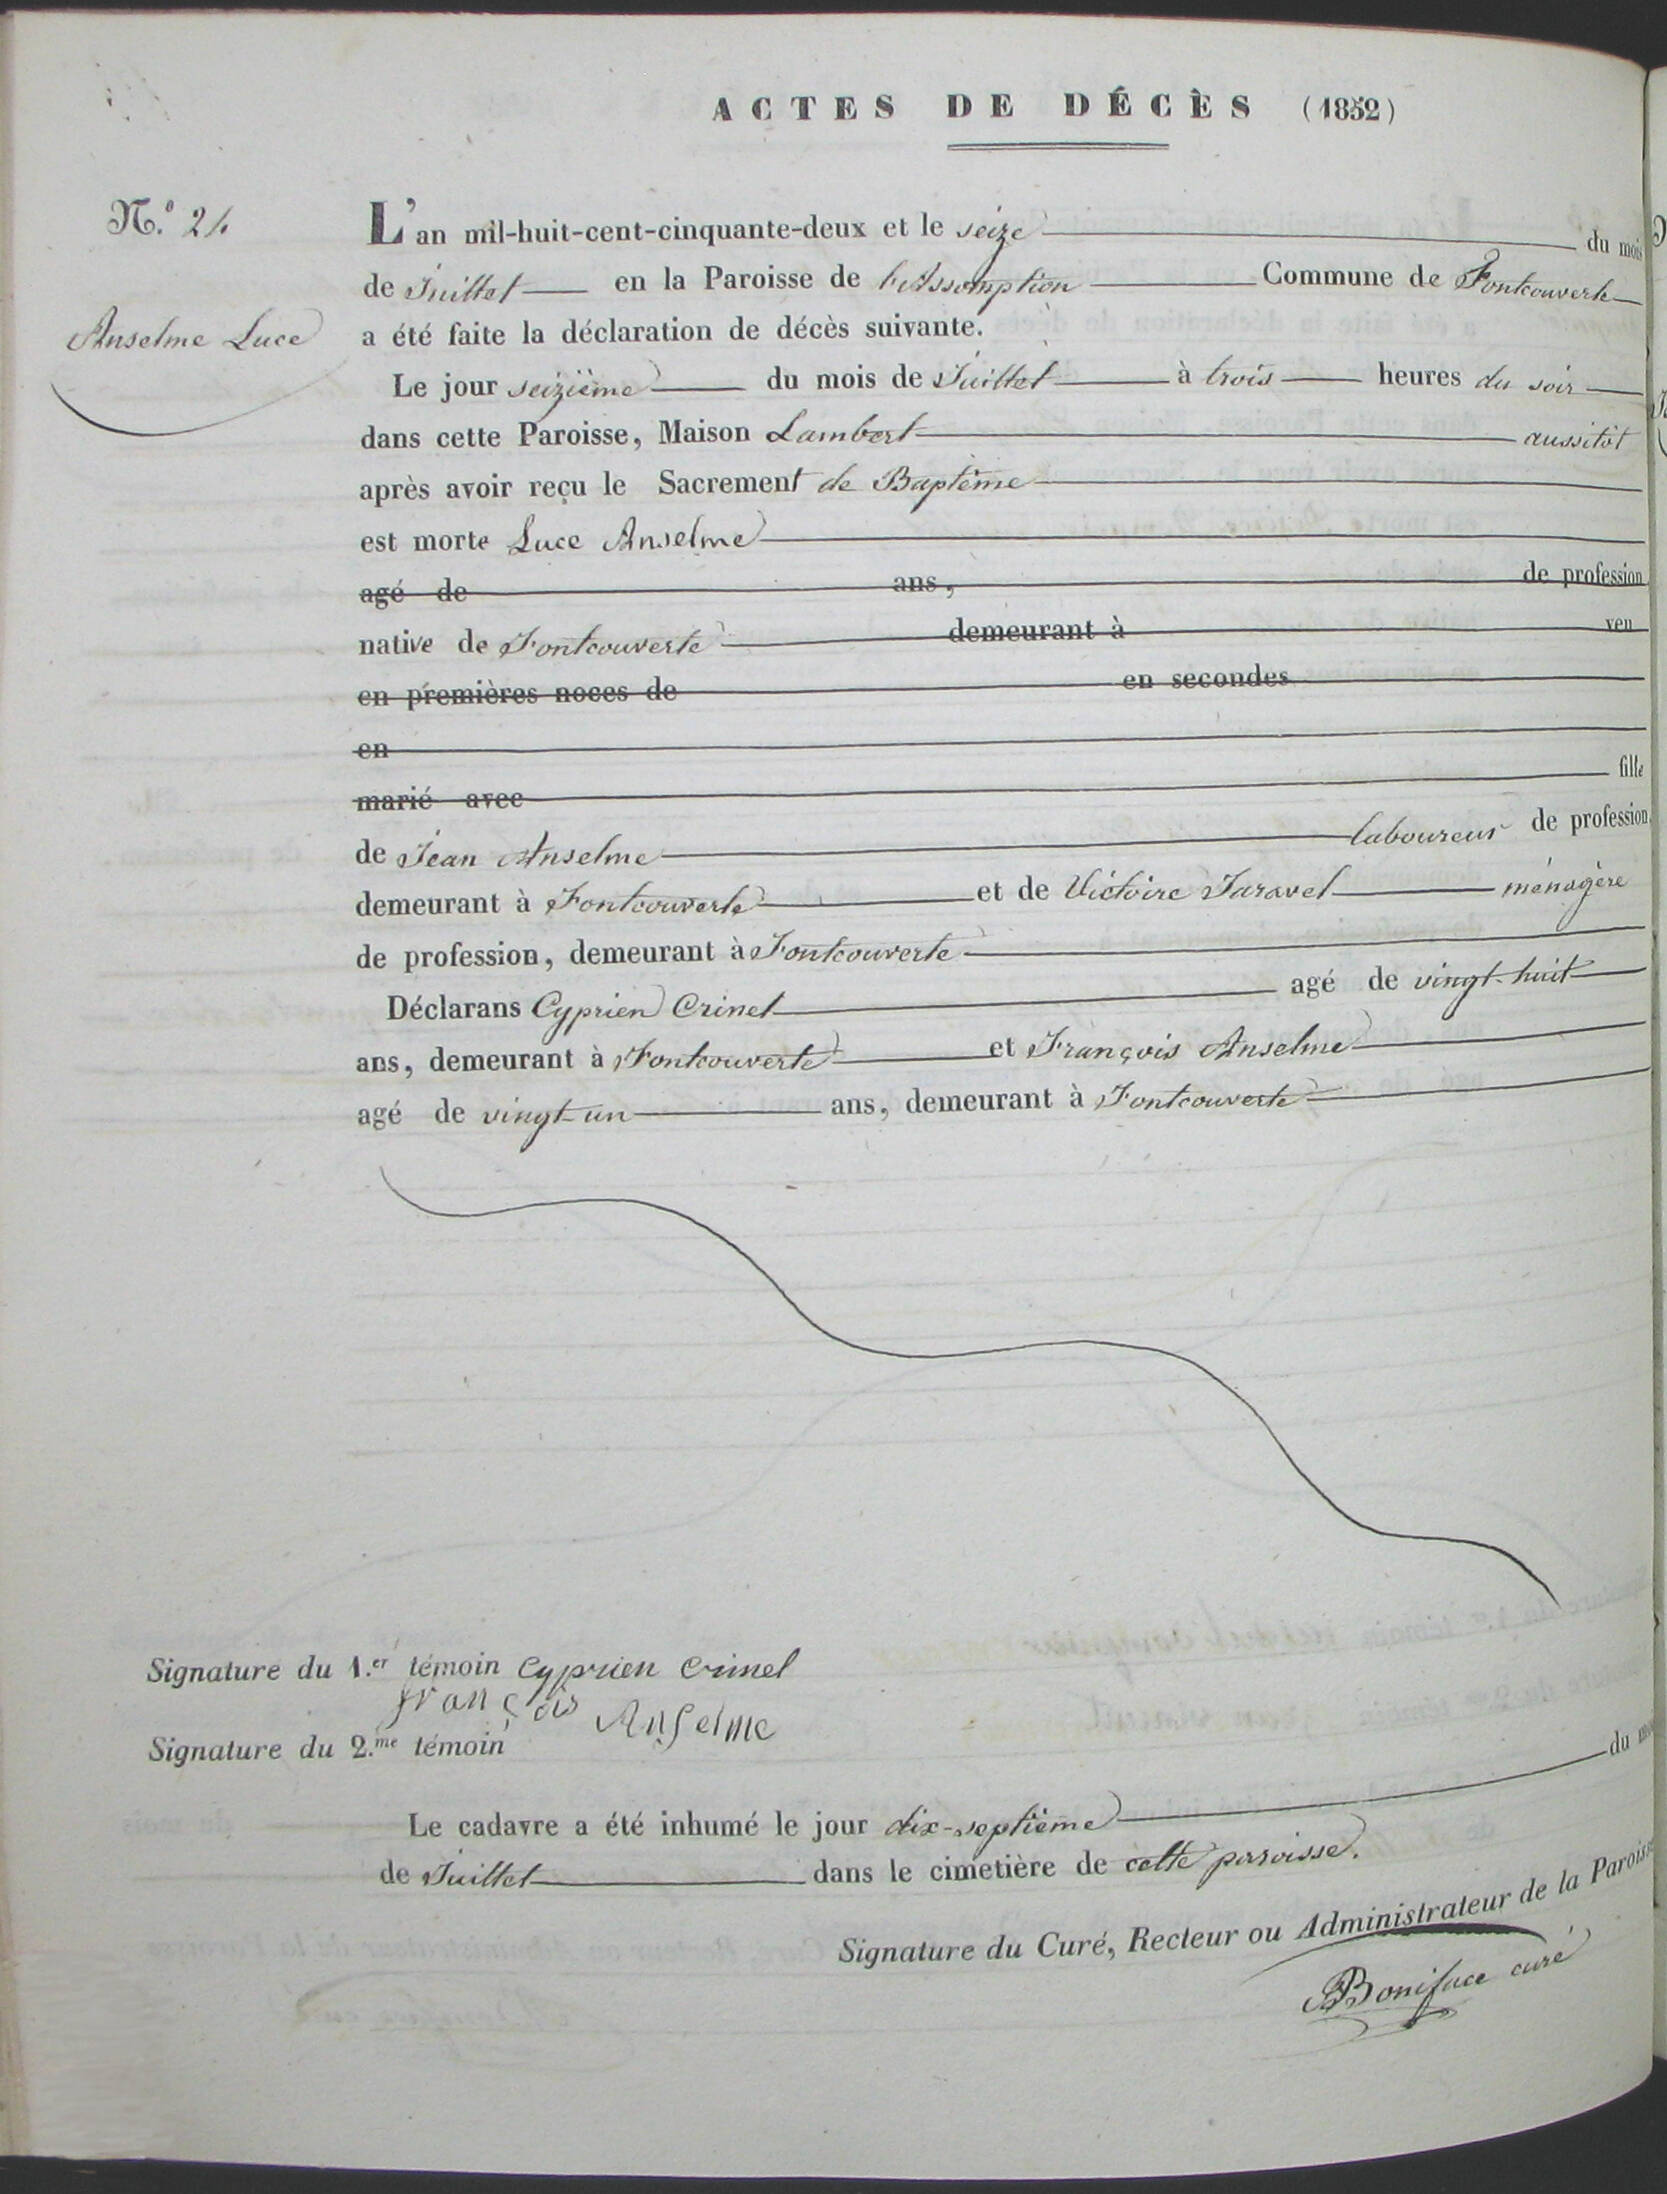 ACTES DE DÉCÈS (1852)
N.º 24
Anselme Luce
L'an mil-huit-cent-cinquante-deux et le seize du mois
de Juillet en la Paroisse de l'Assomption Commune de Fontcouverte
a été faite la déclaration de décès suivante.
Le jour seizième du mois de Juillet à trois heures du soir
dans cette Paroisse, Maison Lambert aussitôt
après avoir reçu le Sacrement de Baptême
est morte Luce Anselme
agé de ans, de profession
native de Fontcouverte demeurant à veu
en premières noces de en secondes
en
marié avec fille
de Jean Anselme laboureur de profession,
demeurant à Fontcouverte et de Victoire Taravel ménagère
de profession, demeurant à Fontcouverte
Déclarans Cyprien Crinel agé de vingt-huit
ans, demeurant à Fontcouverte et François Anselme
agé de vingt-un ans, demeurant à Fontcouverte
Signature du 1.er témoin Cyprien Crinel
françois Anselme
Signature du 2.me témoin
Le cadavre a été inhumé le jour dix-septième du mo
de Juillet dans le cimetière de cette paroisse.
Signature du Curé, Recteur ou Administrateur de la Paroisse
Boniface curé